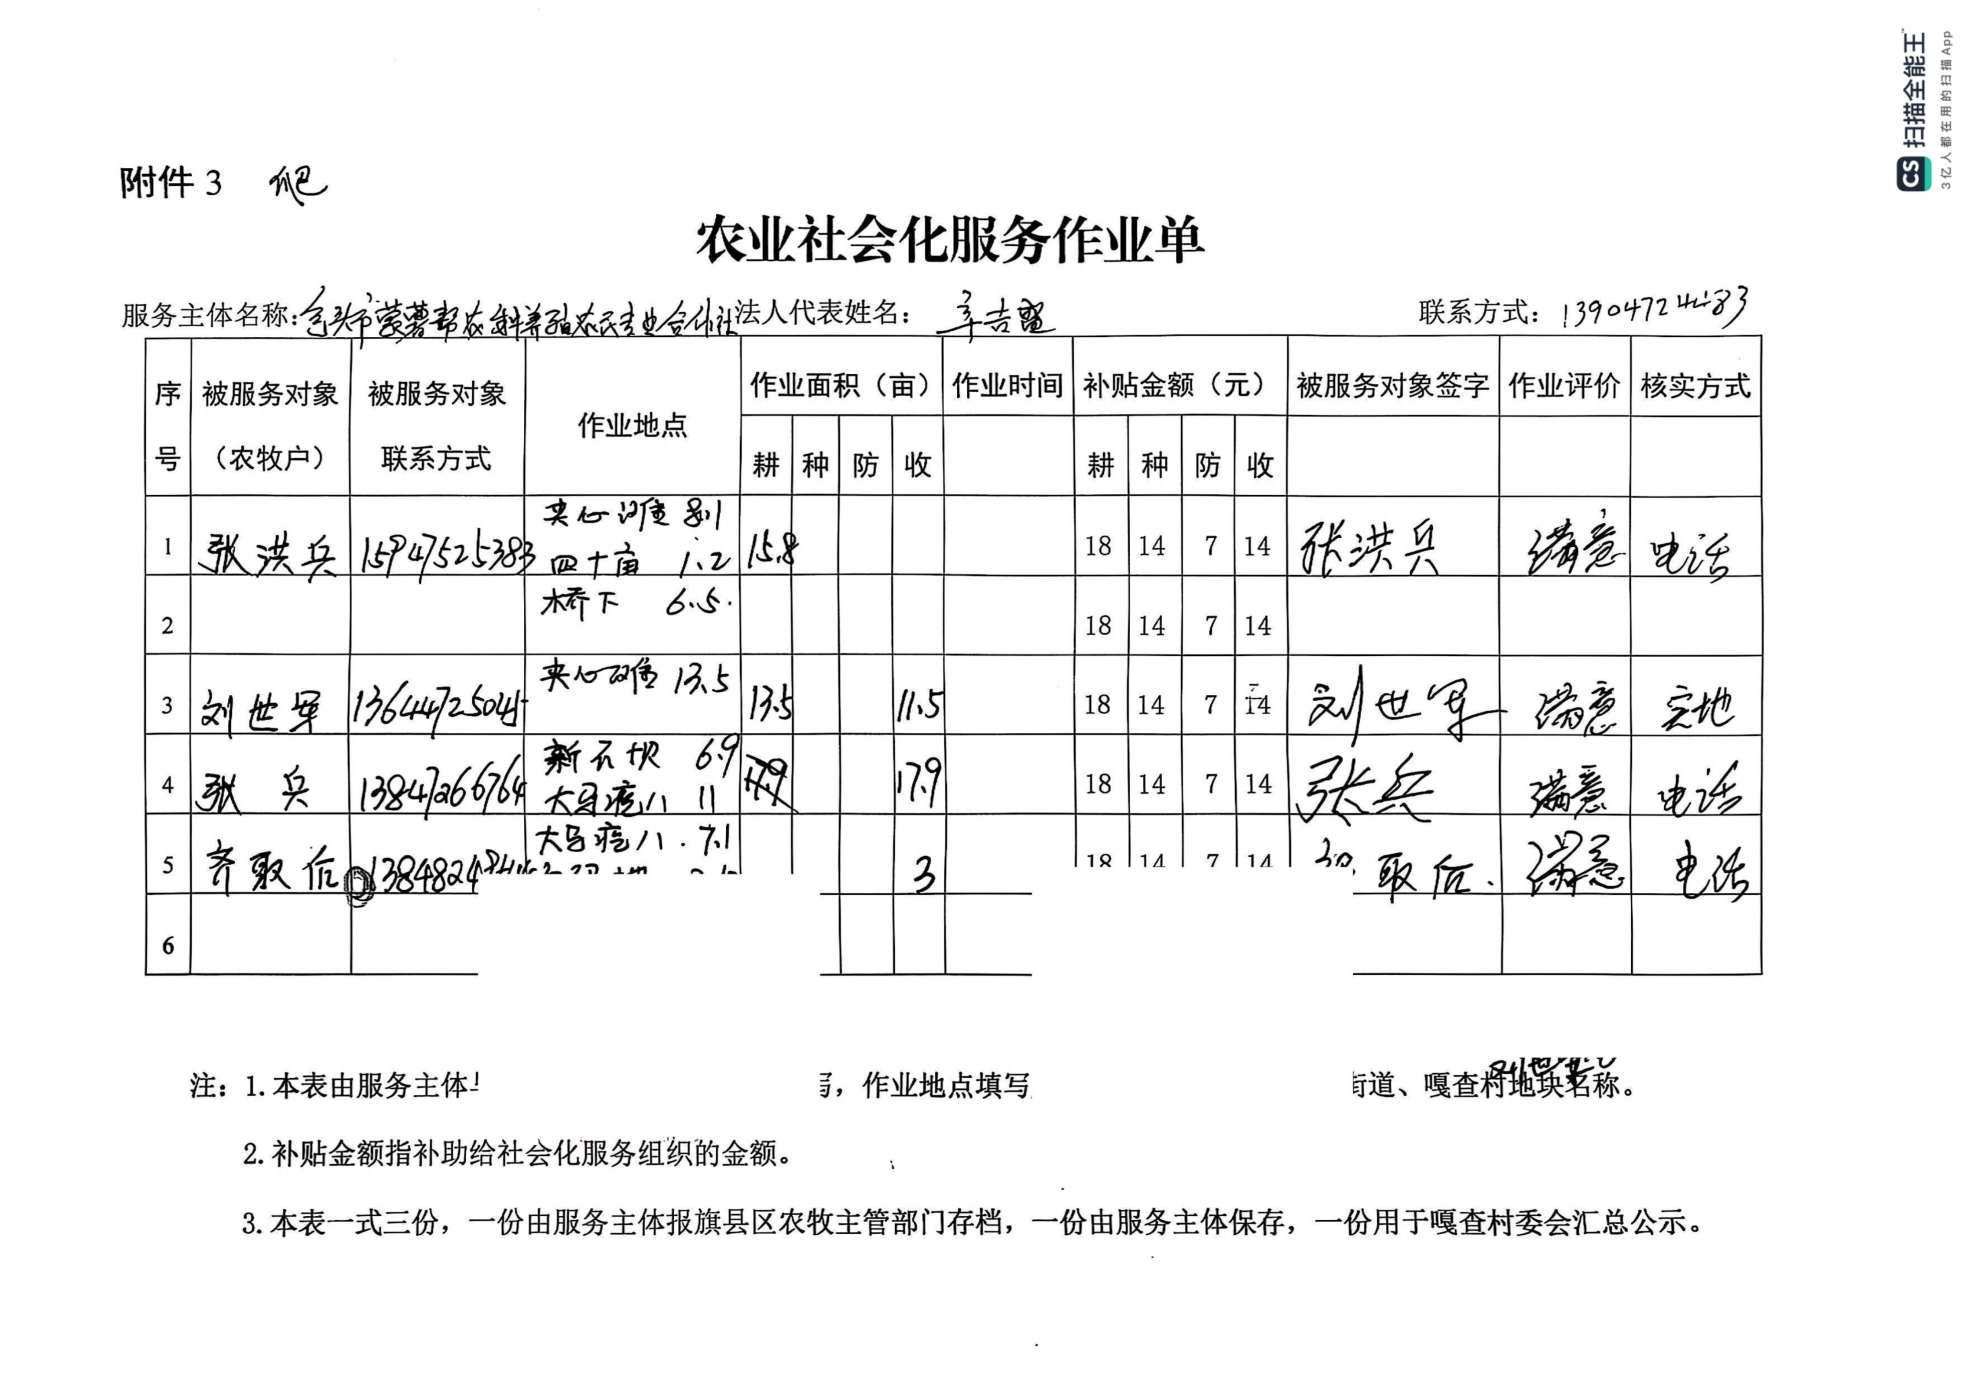 CS 扫描全能王
3亿人都在用的扫描App
附件 3 耙
农业社会化服务作业单
服务主体名称:包头市蒙薯帮农种养殖农民专业合作社 法人代表姓名: 联系方式: 13904724483
序号 被服务对象（农牧户） 被服务对象联系方式 作业地点 作业面积（亩） 作业时间 补贴金额（元） 被服务对象签字 作业评价 核实方式
耕 种 防 收 耕 种 防 收
1 张洪兵 15947525383 夹心滩 8.1 四十亩 1.2 15.8 18 14 7 14 张洪兵 满意 电话
2 桥下 6.5. 18 14 7 14
3 刘世军 13644725045 夹心滩 13.5 13.5 11.5 18 14 7 14 刘世军 满意 实地
4 张兵 13847266764 新石坝 6.9 大马疙八 11 17.9 17.9 18 14 7 14 张兵 满意 电话
5 齐取后 1384824 大马疙八. 7.1 3 18 14 7 14 取后. 满意 电话
6
注: 1.本表由服务主体 写，作业地点填写 街道、嘎查村地块名称。
2.补贴金额指补助给社会化服务组织的金额。
3.本表一式三份，一份由服务主体报旗县区农牧主管部门存档，一份由服务主体保存，一份用于嘎查村委会汇总公示。